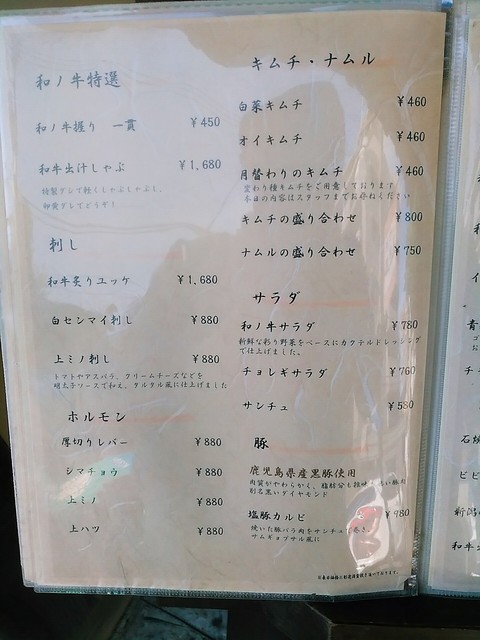 和ノ牛特選
和ノ牛握り 一貫 ¥450
和牛出汁しゃぶ ¥1,680
特製ダシで軽くしゃぶしゃぶし、
卵黄ダレでどうぞ！
刺し
和牛炙りユッケ ¥1,680
白センマイ刺し ¥880
上ミノ刺し ¥880
トマトやアスパラ、クリームチーズなどを
明太子ソースで和え、タルタル風に仕上げました
ホルモン
厚切りレバー ¥880
シマチョウ ¥880
上ミノ ¥880
上ハツ ¥880
キムチ・ナムル
白菜キムチ ¥460
オイキムチ ¥460
月替わりのキムチ ¥460
変わり種キムチをご用意しております
本日の内容はスタッフまでお尋ねください
キムチの盛り合わせ ¥800
ナムルの盛り合わせ ¥750
サラダ
和ノ牛サラダ ¥780
新鮮な彩り野菜をベースにカクテルドレッシング
で仕上げました。
チョレギサラダ ¥760
サンチュ ¥580
豚
鹿児島県産黒豚使用
肉質がやわらかく、脂肪分も
別名黒いダイヤモンド
塩豚カルビ ¥980
焼いた豚バラ肉をサンチュで巻き、
サムギョプサル風に